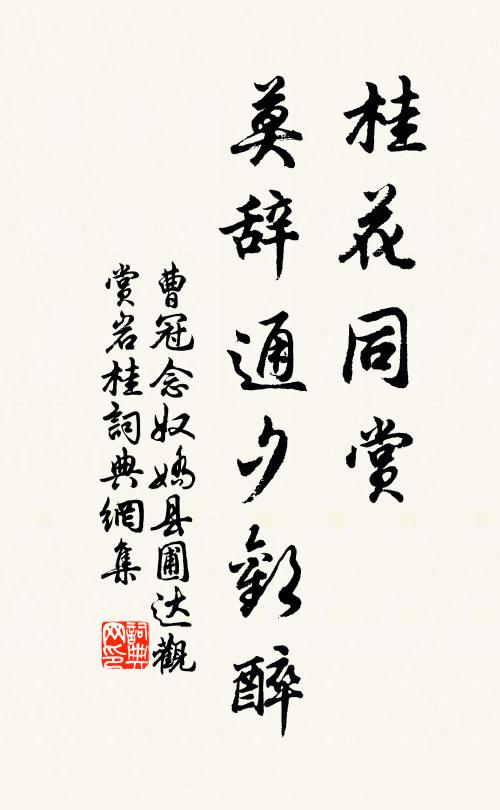 桂花同赏
莫辞通夕歡醉
曹冠念奴嬌县圃达觀
赏岩桂詞典網集
詞典
网印